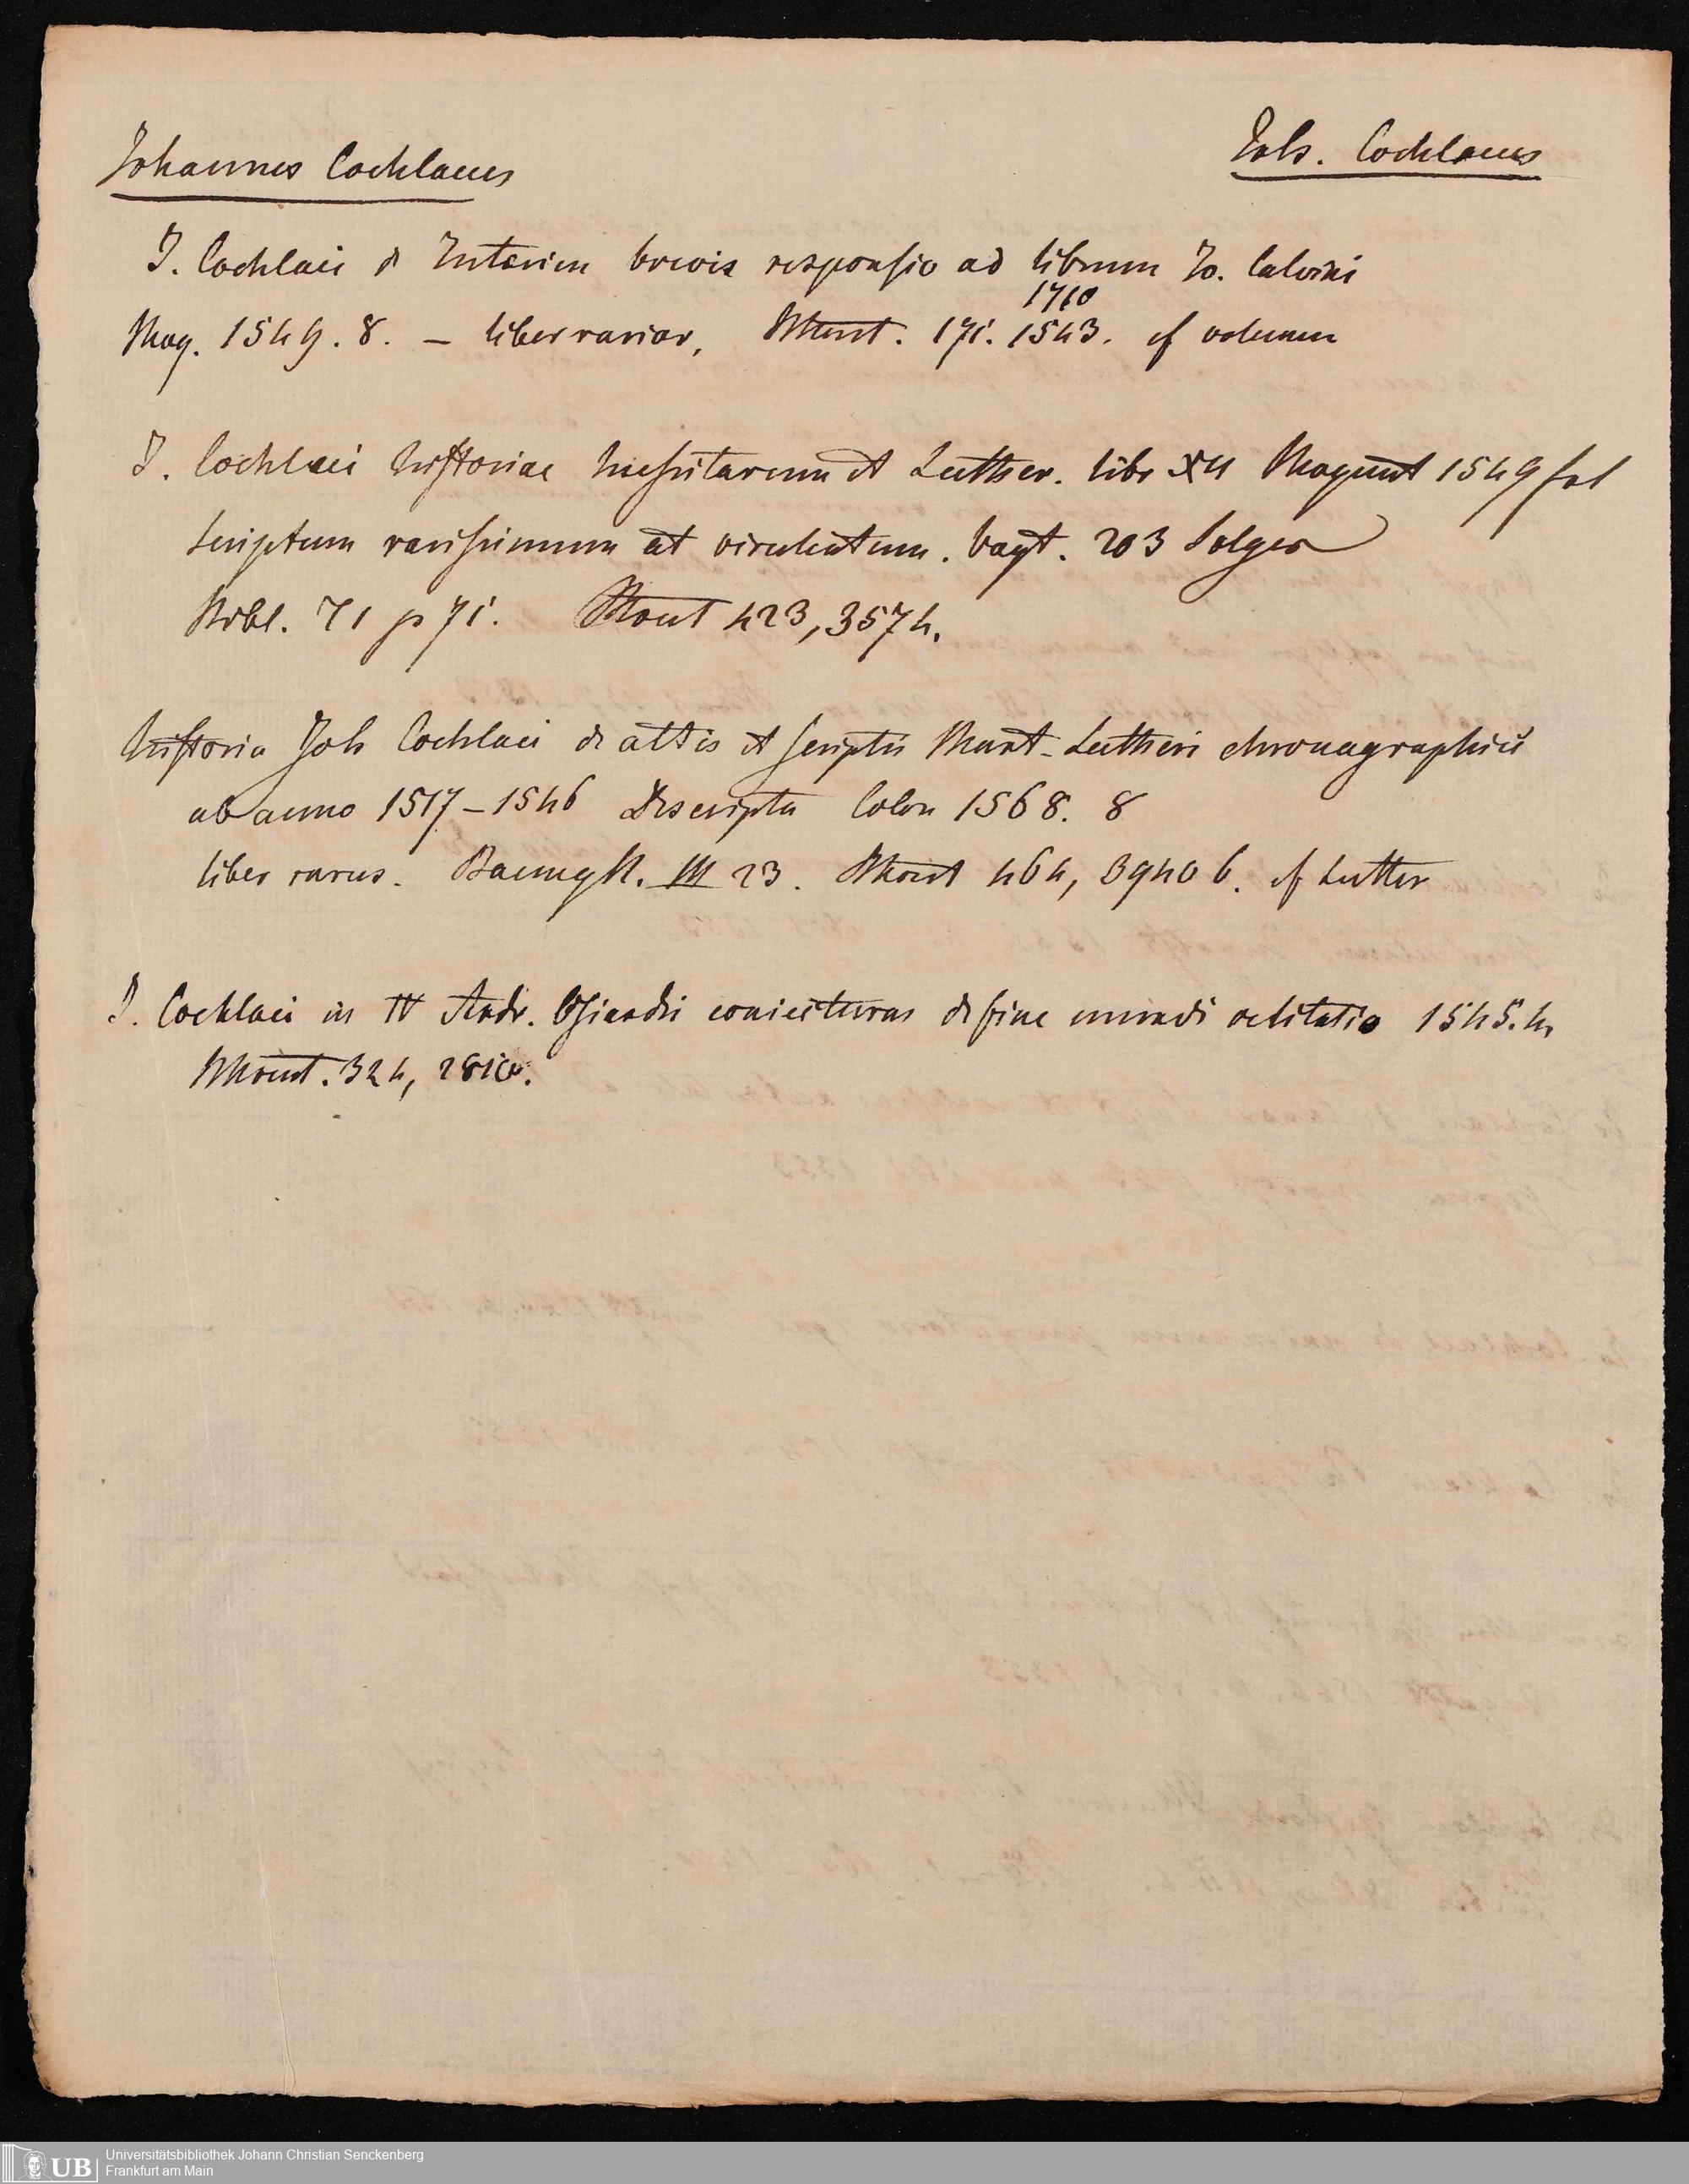 Johannes Cochlaeus
Joh. Cochlaeus
J. Cochlaei de Interim brevis responsio ad librum Jo. Calvini
1710
Mog. 1549. 8. – liber rarior, Mout. 171. 1543. cf volumen
J. Cochlaei historiae hussitarum et Luther. libr XII Magunt 1549 fol
scriptum rarissimum et virulentum. Vogt. 203 Solger
Bibl. 71 p 71. Mout 423, 3574.
historia Joh Cochlaei de actis et scriptis Mart. Lutheri chronographicis
ab anno 1517–1546 descripta Colon 1568. 8
liber rarus. Baumgt. III 23. Mout 464, 3940 6. cf Luther
J. Cochlaei in IV Andr. Osiandri coniecturas de fine mundi velitatio 1545. 4
Mout. 324,
Universitätsbibliothek Johann Christian Senckenberg
Frankfurt am Main
UB